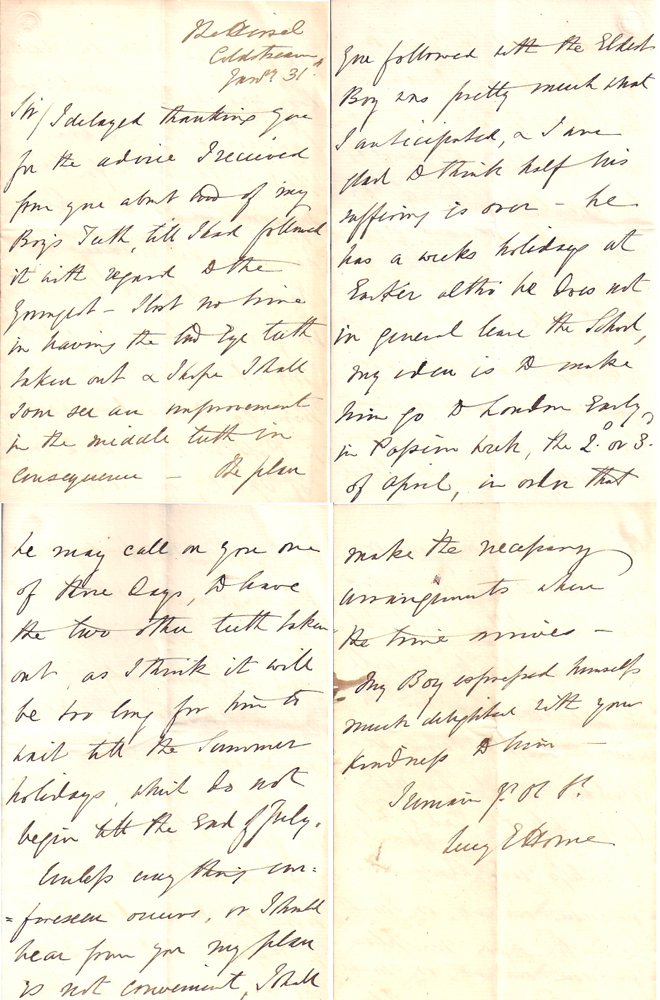 The Hirsel
Coldstream
Janry. 31st
Sir/ I delayed thanking you
for the advice I received
from you about two of my
Boys Teeth, till I had followed
it with regard to the
youngest – I lost no time
in having the two Eye teeth
taken out & I hope I shall
soon see an improvement
in the middle teeth in
consequence – The plan
you followed with the Eldest
Boy was pretty much what
I anticipated, & I am
glad to think half his
suffering is over – he
has a weeks holidays at
Easter altho he does not
in general leave the School,
my idea is to make
him go to London Early
in Passion Week, the 2d. or 3d.
of April, in order that
he may call on you one
of those Days, to have
the two other teeth taken
out, as I think it will
be too long for him to
wait till the Summer
holidays, which do not
begin till the End of July.
Unless any thing un=
=foreseen occurs, or I shall
hear from you my plan
is not convenient, I shall
make the necessary
arrangements when
the time arrives –
My Boy expressed himself
much delighted with your
kindness to him –
I remain yr. Ob St.
Lucy E Home